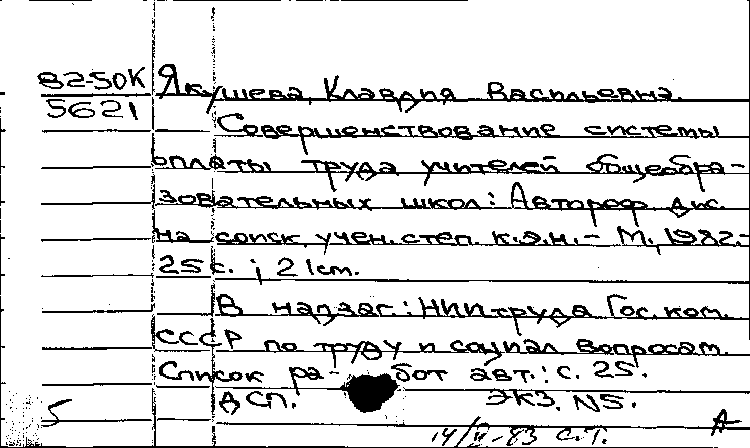 82-50К Якушева, Клавдия Васильевна.
5621
Совершенствование системы
оплаты труда учителей общеобра-
зовательных школ: Автореф. дис.
на соиск. учен. степ. к.э.н. – М., 1982.-
25 с. ; 21см.
В надзаг.: НИИ труда Гос. ком.
СССР по труду и социал. вопросам.
Список ра- бот авт.: с. 25.
ДСП. ЭКЗ. N5.
5 А
14/V-83 С.Т.